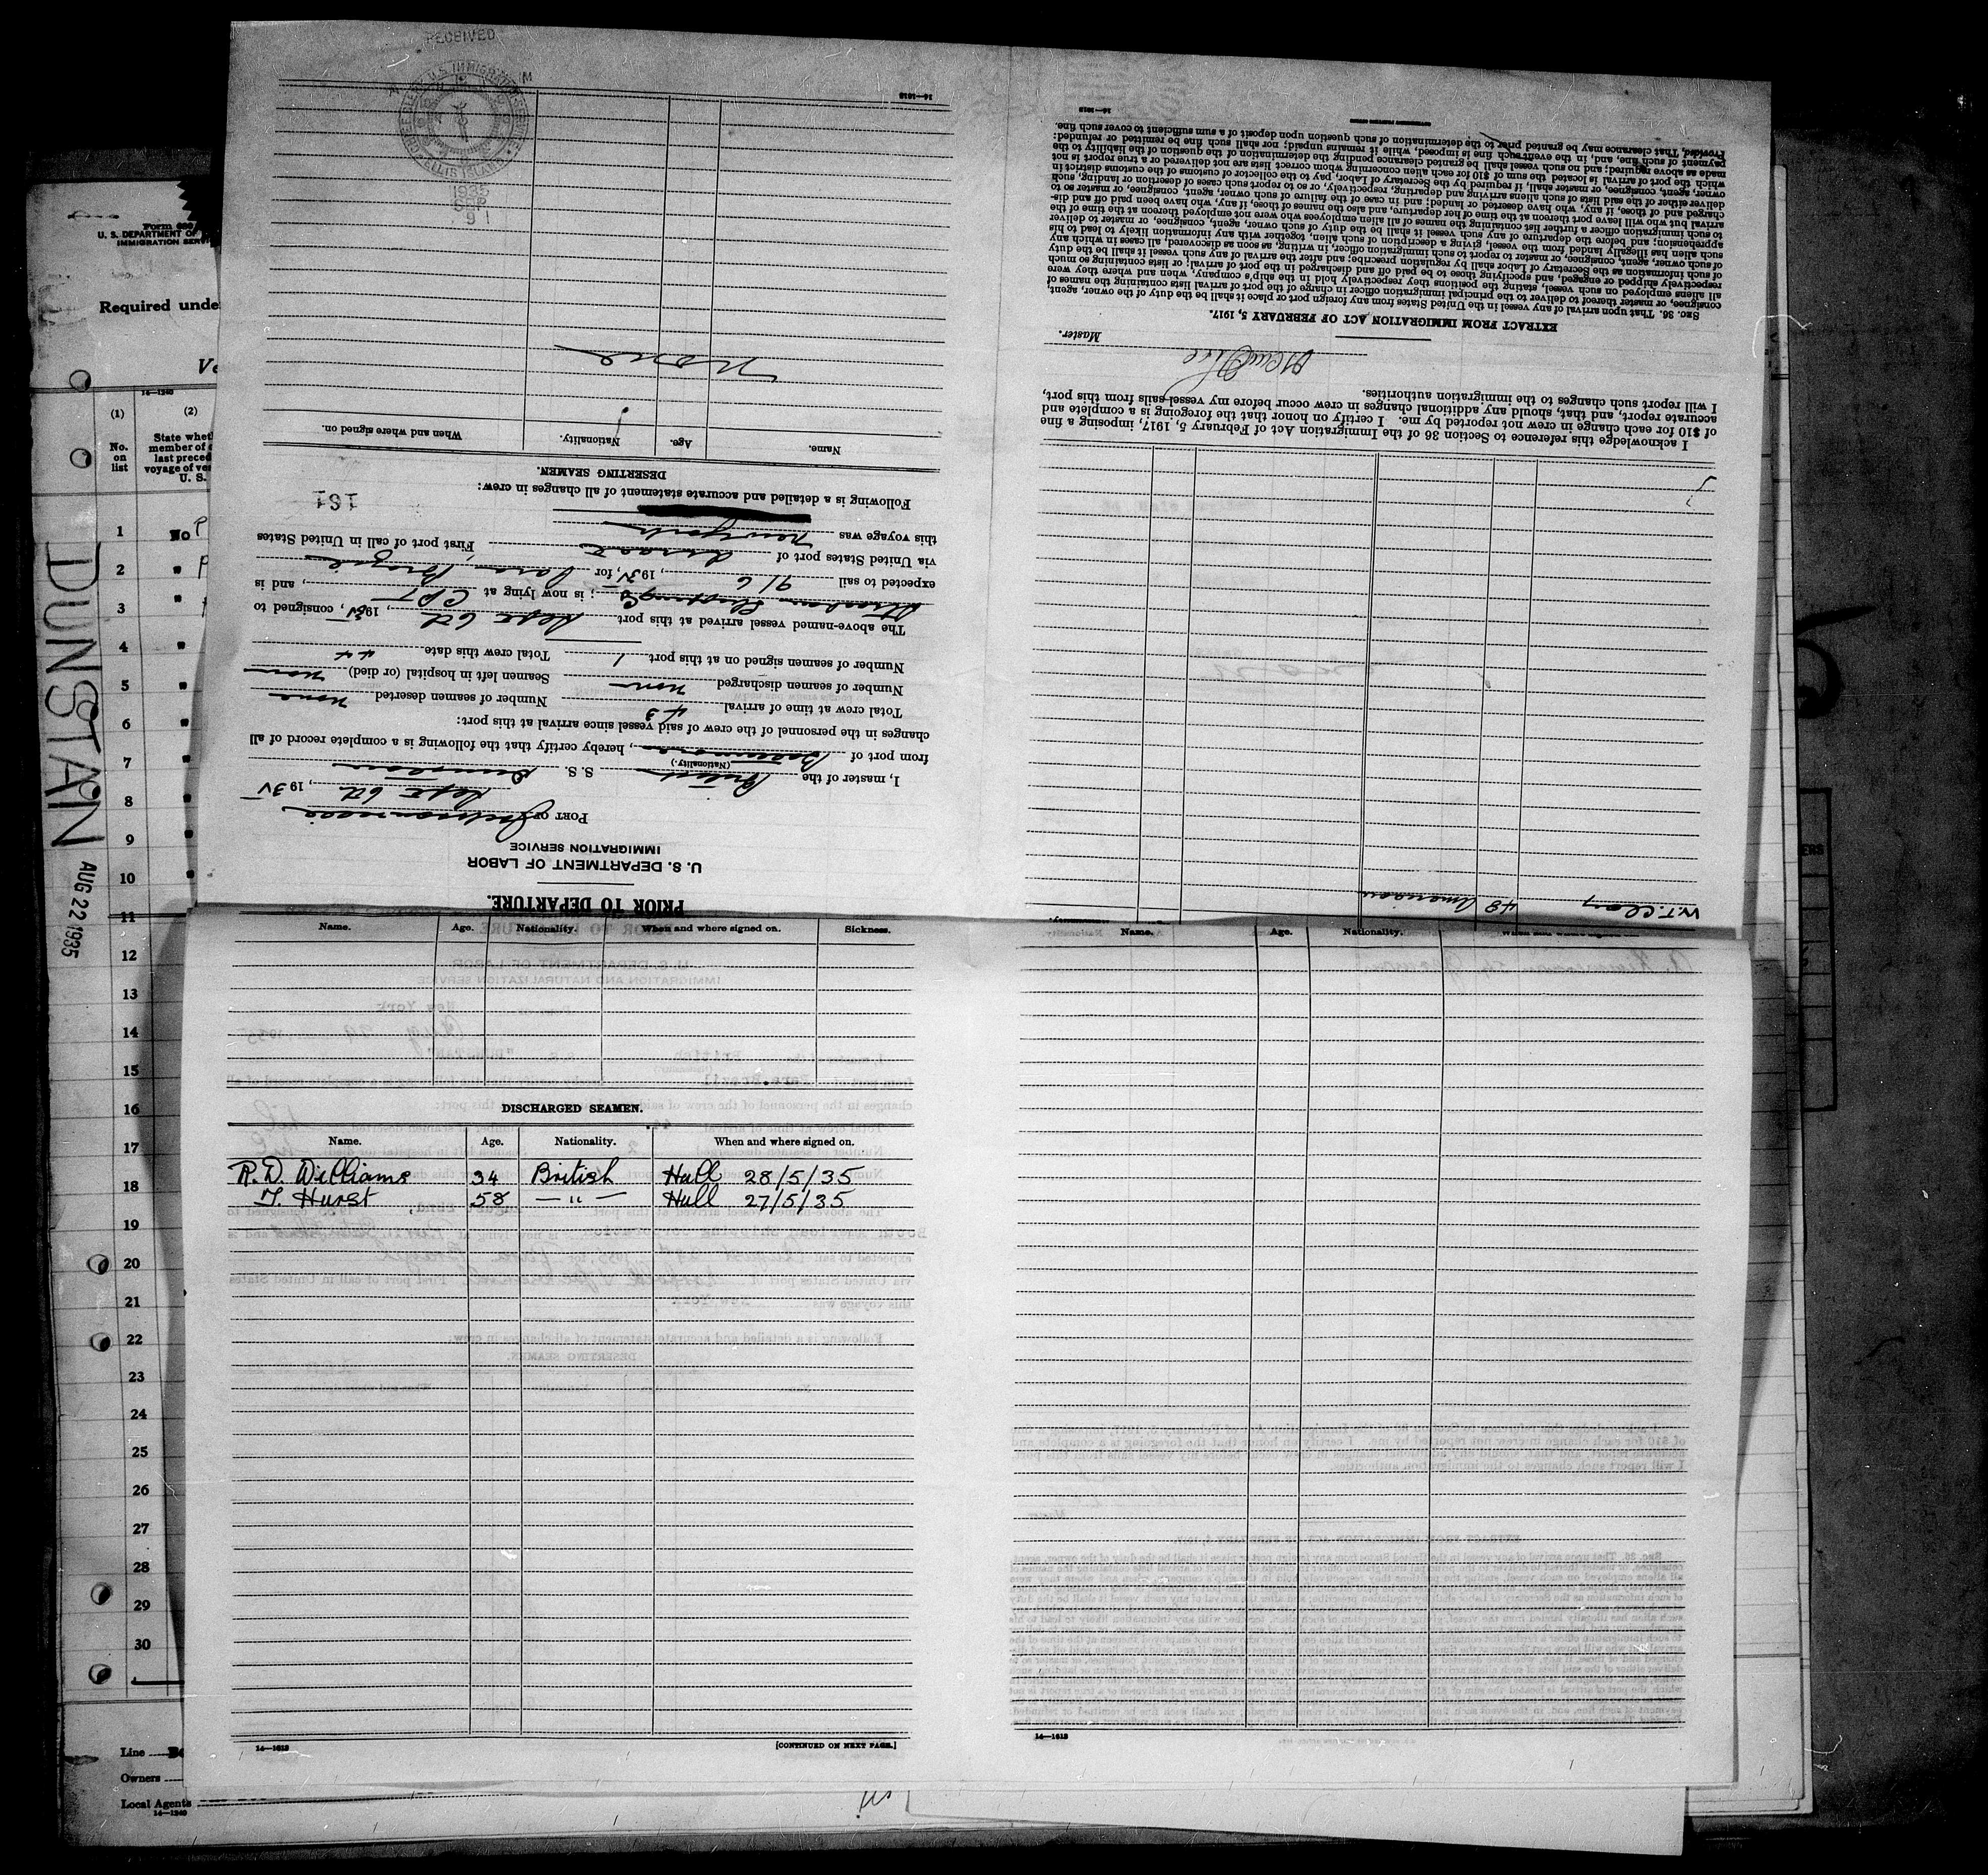 Form 680
U. S. DEPARTMENT OF
IMMIGRATION SERV
Required unde
Ve
14—1240
(1)
No. on list
(2)
State whet
member of
last preced
voyage of ves
U. S.
1 No
2
3
4
5
6
7
8
9
10
11
12
13
14
15
16
17
18
19
20
21
22
23
24
25
26
27
28
29
30
DUNSTAN
AUG 22 1935
Line
Owners
Local Agents
14—1240
PRIOR TO DEPARTURE.
U. S. DEPARTMENT OF LABOR
IMMIGRATION SERVICE
PORT OF Jacksonville
Sept 6th, 1935
I, master of the British S. S. Dunstan
(Nationality.)
from port of, hereby certify that the following is a complete record of all
changes in the personnel of the crew of said vessel since arrival at this port:
Total crew at time of arrival 43 Number of seamen deserted none
Number of seamen discharged none Seamen left in hospital (or died) none
Number of seamen signed on at this port 1 Total crew this date 44
The above-named vessel arrived at this port Sept 6th, 1935, consigned to
Strachan Shipping Co; is now lying at, and is
expected to sail 9/6, 1935, for Para Brazil
via United States port of direct First port of call in United States
this voyage was New York
Following is a detailed and accurate statement of all changes in crew:
161
DESERTING SEAMEN.
Name. Age. Nationality. When and where signed on.
None
16—1613
RECEIVED
U.S. IMMIGRATION SERVICE
ELLIS ISLAND
1935
W.T. Clary 48 American
I acknowledge this reference to Section 36 of the Immigration Act of February 5, 1917, imposing a fine
of $10 for each change in crew not reported by me. I certify on honor that the foregoing is a complete and
accurate report, and that, should any additional changes in crew occur before my vessel sails from this port,
I will report such changes to the immigration authorities.
Master.
EXTRACT FROM IMMIGRATION ACT OF FEBRUARY 5, 1917.
SEC. 36. That upon arrival of any vessel in the United States from any foreign port or place it shall be the duty of the owner, agent,
consignee, or master thereof to deliver to the principal immigration officer in charge of the port of arrival lists containing the names of
all aliens employed on such vessel, stating the positions they respectively hold in the ship's company, when and where they were
respectively shipped or engaged, and specifying those to be paid off and discharged in the port of arrival; or lists containing so much
of such information as the Secretary of Labor shall by regulation prescribe; and after the arrival of any such vessel it shall be the duty
of such owner, agent, consignee, or master to report to such immigration officer, in writing, as soon as discovered, all cases in which any
such alien has illegally landed from the vessel, giving a description of such alien, together with any information likely to lead to his
apprehension; and before the departure of any such vessel it shall be the duty of such owner, agent, consignee, or master to deliver
to such immigration officer a further list containing the names of all alien employees who were not employed thereon at the time of the
arrival but who will leave port thereon at the time of her departure, and also the names of those, if any, who have been paid off and dis-
charged and of those, if any, who have deserted or landed; and in case of the failure of such owner, agent, consignee, or master so to
deliver either of the said lists of such aliens arriving and departing, respectively, or so to report such cases of desertion or landing, such
owner, agent, consignee, or master shall, if required by the Secretary of Labor, pay to the collector of customs of the customs district in
which the port of arrival is located the sum of $10 for each alien concerning whom correct lists are not delivered or a true report is not
made as above required; and no such vessel shall be granted clearance pending the determination of the question of the liability to the
payment of such fine, and, in the event such fine is imposed, while it remains unpaid; nor shall such fine be remitted or refunded:
Provided, That clearance may be granted prior to the determination of such question upon deposit of a sum sufficient to cover such fine.
16—1613
Name. Age. Nationality. When and where signed on. Sickness.
DISCHARGED SEAMEN.
Name. Age. Nationality. When and where signed on.
R. D. Williams 34 British Hull 28/5/35
T. Hurst 58 — " — Hull 27/5/35
14—1613
[CONTINUED ON NEXT PAGE.]
Name. Age. Nationality. When and where signed on.
14—1613